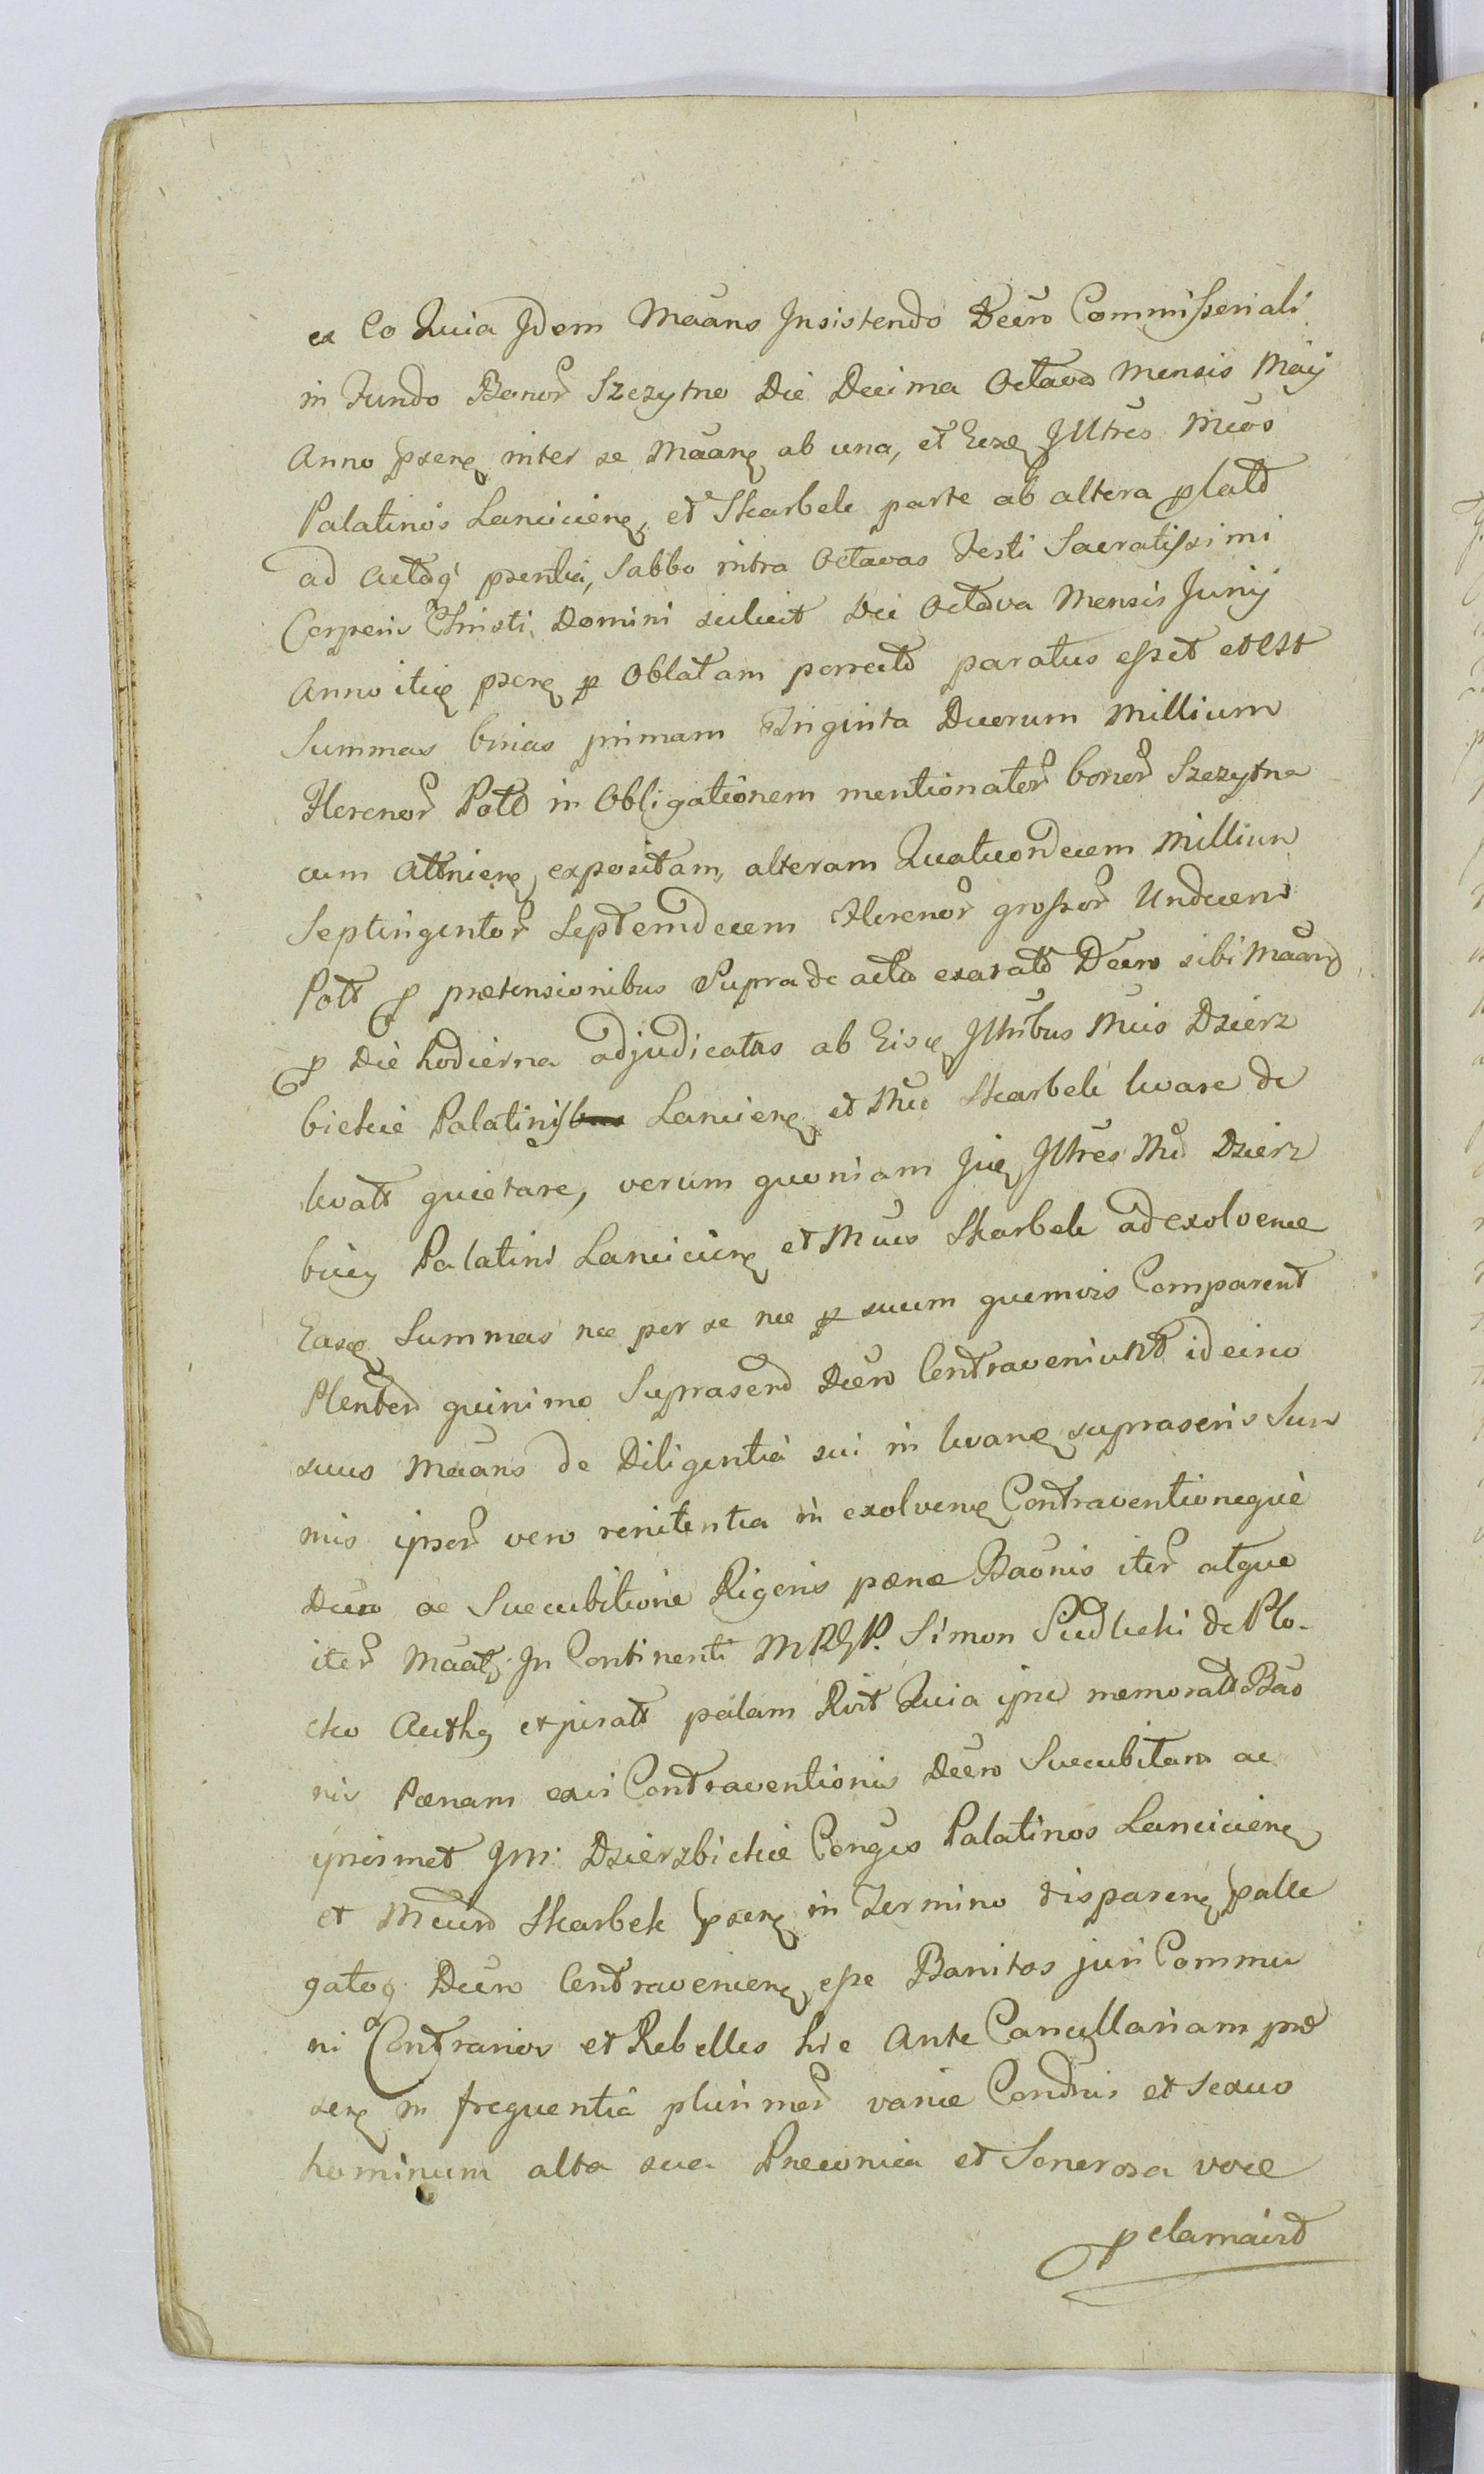 ex Eo Quia Idem Maãns Insistendo Decro Commisseriali
in Fundo Bonor Szczytno Die Decima Octava Mensis Maij
Anno psenꝫ inter se Maanꝫ ab una, et Eosꝫ Illtres Mcos
Palatinos Lanciciensꝫ et Skarbek parte ab altera plato
ad Actaqꝫ psentia, Sabbo intra Octavas Festi Sacratissimi
Corporis Christi Domini scilicet Die Octava Mensis Junij
Anno itiꝫ psenꝫ p Oblatam porrecto paratus esset et est
Summas binas primam Triginta Duorum Millium
Florenor Polo in Obligationem mentionator bonor Szczytna
cum Attnienꝫ expositam, alteram Quatuordecem Millium
Septingentor Septemdecem Florenor grossor Undecem
Poll p prætensionibus Supra de acto exarato Decro sibi Maand
p Die hodierna adjudicatas ab Eisꝫ Illtribus Mcis Dzierz
bickie Palatinis Lancicienꝫ et Mco Skarbek levare de
levatt quietare, verum quoniam Iiꝫ Illtres Mci Dzierz
biccy Palatini Lancicienꝫ et Mcus Skarbek ad exolvenꝫ
Easꝫ Summas nec per se nec p suum quemvis Comparent
Plentem quinimo Suprascro Decro Contraveniunt idcirco
suus Maans de Diligentia sui in levanꝫ suprascris Sum
mis ipsor vero renitentia in exolvenꝫ Contraventioneque
Decro ac Succubitione Rigoris pœnæ Baonis iter atque
iter Maatꝫ In Continenti M R G P. Simon Siedlecki de Plo-
cko Authꝫ et juratt palam Rvit Quia ipse memoratt Bao
nis Pœnam exvi Contraventionis Decro Succubitam ac
ipsismet Im: Dzierzbickie Conges Palatinos Lancicienꝫ
et Mcum Skarbek psenꝫ in Termino disparenꝫ palle
gatoqꝫ Decro Contravenienꝫ esse Banitos juri Commu
ni Contrarios et Rebelles hic Ante Cancellariam præ
senꝫ in frequentia plurimor variæ Condnis et sexus
hominum alta sua Præconica et Sonorosa voce
pclamavit